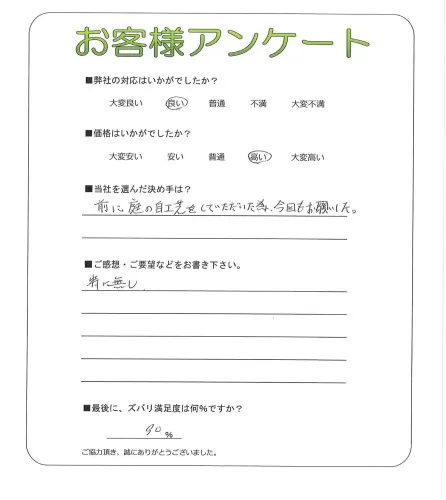 お客様アンケート
■弊社の対応はいかがでしたか？
大変良い 良い 普通 不満 大変不満
■価格はいかがでしたか？
大変安い 安い 普通 高い 大変高い
■当社を選んだ決め手は？
前に庭の自工をしていただいた為、今回もお願いした。
■ご感想・ご要望などをお書き下さい。
特に無し
■最後に、ズバリ満足度は何％ですか？
90 %
ご協力頂き、誠にありがとうございました。